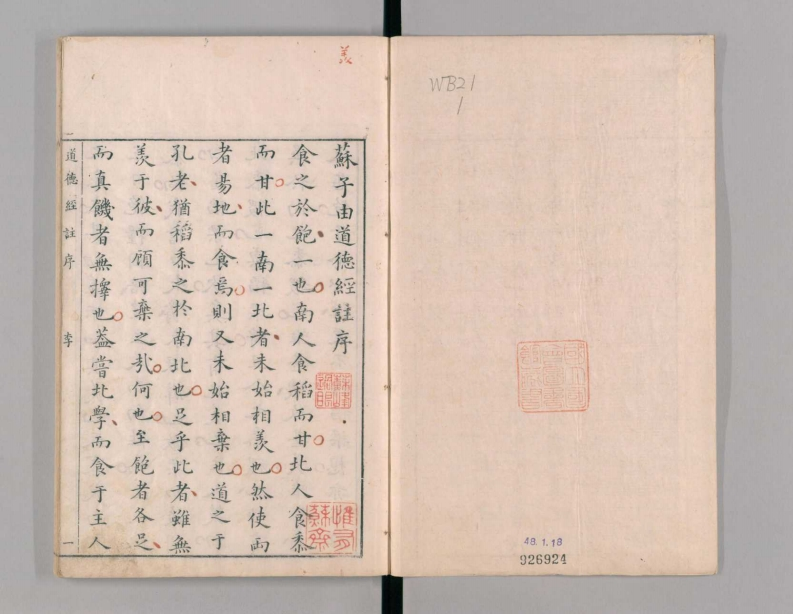 WB21
1
48.1.18
926924
羡
蘇子由道德經註序
食之於飽一也南人食稻而甘北人食黍
而甘此一南一北者未始相羡也然使兩
者易地而食焉則又未始相棄也道之于
孔老猶稻黍之於南北也足乎此者雖無
羡于彼而顧可棄之㢤何也至飽者各足
而真饑者無擇也葢嘗北學而食于主人
道德經註序
李
一